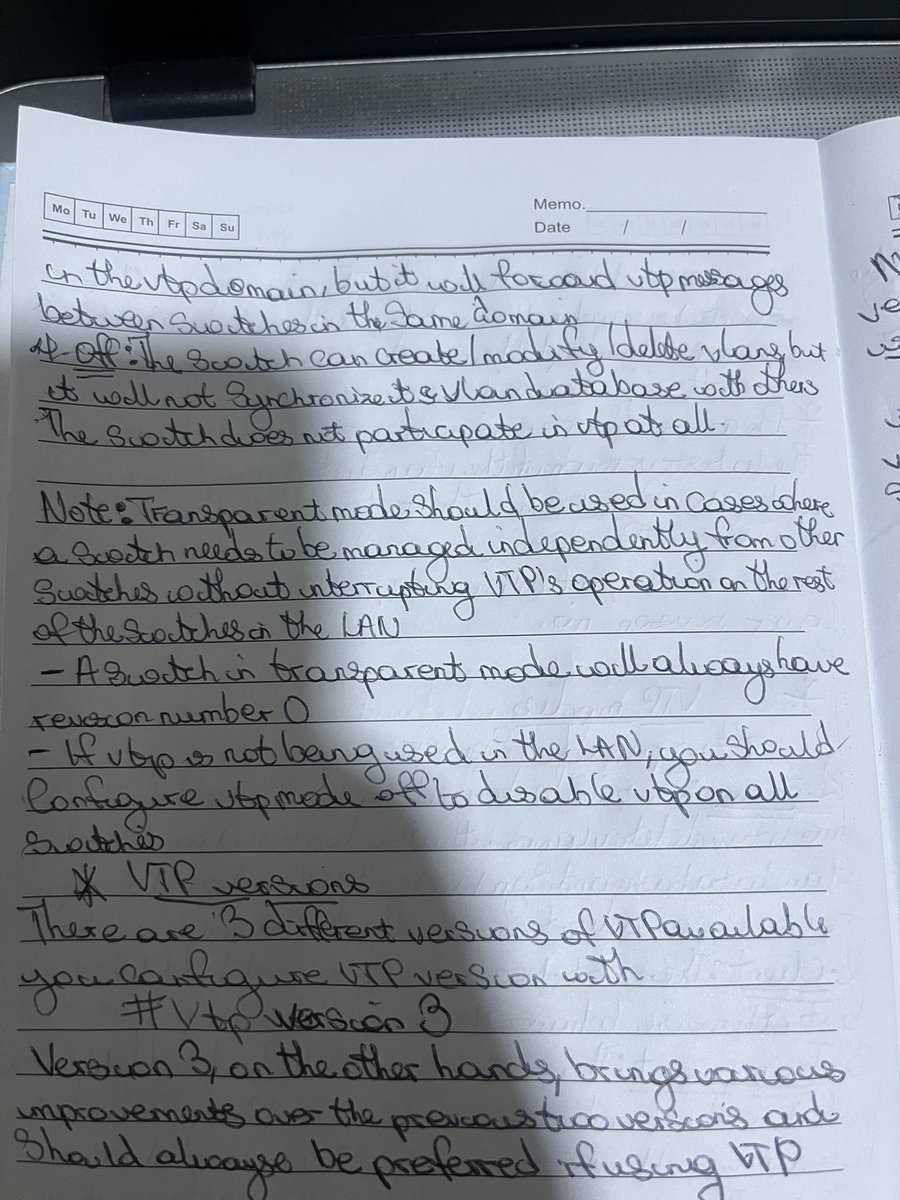 Mo Tu We Th Fr Sa Su
Memo.
Date / /
in the vtp domain, but it will forward vtp messages
between switches in the same domain
4- Off: The switch can create/modify/delete vlans, but
it will not synchronize its vlan database with others
The switch does not participate in vtp at all.
Note: Transparent mode should be used in cases where
a switch needs to be managed independently from other
switches without interrupting VTP's operation on the rest
of the switches in the LAN
- A switch in transparent mode will always have
revision number 0
- If vtp is not being used in the LAN, you should
Configure vtp mode off to disable vtp on all
switches
* VTP versions
There are 3 different versions of VTP available
you configure VTP version with
# Vtp version 3
Version 3, on the other hands, brings various
improvements over the previous two versions and
should always be preferred if using VTP